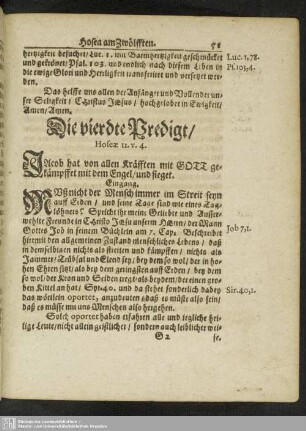 Hosea am Zwölfften. 51
hertzigkeit besuchet/ Luc. 1. mit Barmhertzigkeit geschmücket
und gekrönet/ Psal. 103. und endlich nach diesem Leben in
die ewige Glori und Herrligkeit transferiret und versetzet wer-
den.
Luc. 1, 78.
Ps. 103, 4.
Das helffe uns allen der Anfänger und Vollender un-
ser Seligkeit/ Christus Jesus/ hochgelobet in Ewigkeit/
Amen/ Amen.
Die vierdte Predigt/
Hoseæ 12. v. 4.
Jacob hat von allen Kräfften mit GOTT ge-
kämpffet mit dem Engel/ und sieget.
Eingang.
Muß nicht der Mensch immer im Streit seyn
auff Erden/ und seine Tage sind wie eines Tag-
löhners? Spricht ihr meine Geliebte und Außer-
wehlte Freunde in Christo Jesu unserm Herrn/ der Mann
Gottes Job in seinem Büchlein am 7. Cap. Beschreibet
hiermit den allgemeinen Zustand menschliches Lebens/ daß
in demselbigen nichts als streiten und kämpffen/ nichts als
Jammer/ Trübsal und Elend sey/ bey dem so wol/ der in ho-
hen Ehren sitzt/ als bey dem geringsten auff Erden/ bey dem
so wol/ der Kron und Seiden tregt/ als bey dem/ der einen gro-
ben Kittel an hat/ Syr. 40. und da stehet sonderlich dabey
das wörtlein oportet, anzudeuten/ daß es müsse also seyn/
daß es müsse mit uns Menschen also hergehen.
Job 7, 1.
Sir. 40, 1.
Solch oportet haben erfahren alle und jegliche hei-
lige Leute/ nicht allein geistlicher/ sondern auch leiblicher wei-
G 2 se.